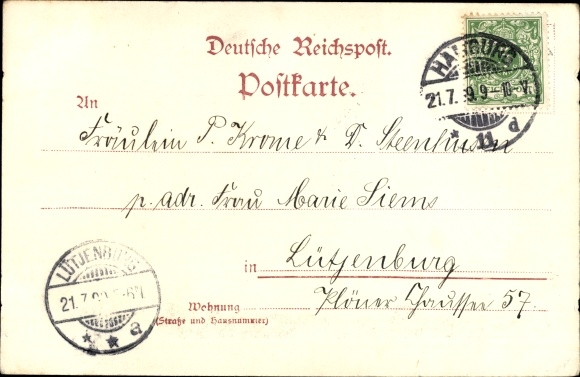 Deutsche Reichspost.
Postkarte.
HAMBURG
21.7. 99 9-10 V.
* 11 d
An
Fräulein P. Krome & D. Steenhusen
p. adr. Frau Marie Siems
in Lützenburg
Plöner Chaussee 57.
Wohnung
(Straße und Hausnummer)
LÜTJENBURG
21.7.
* * a